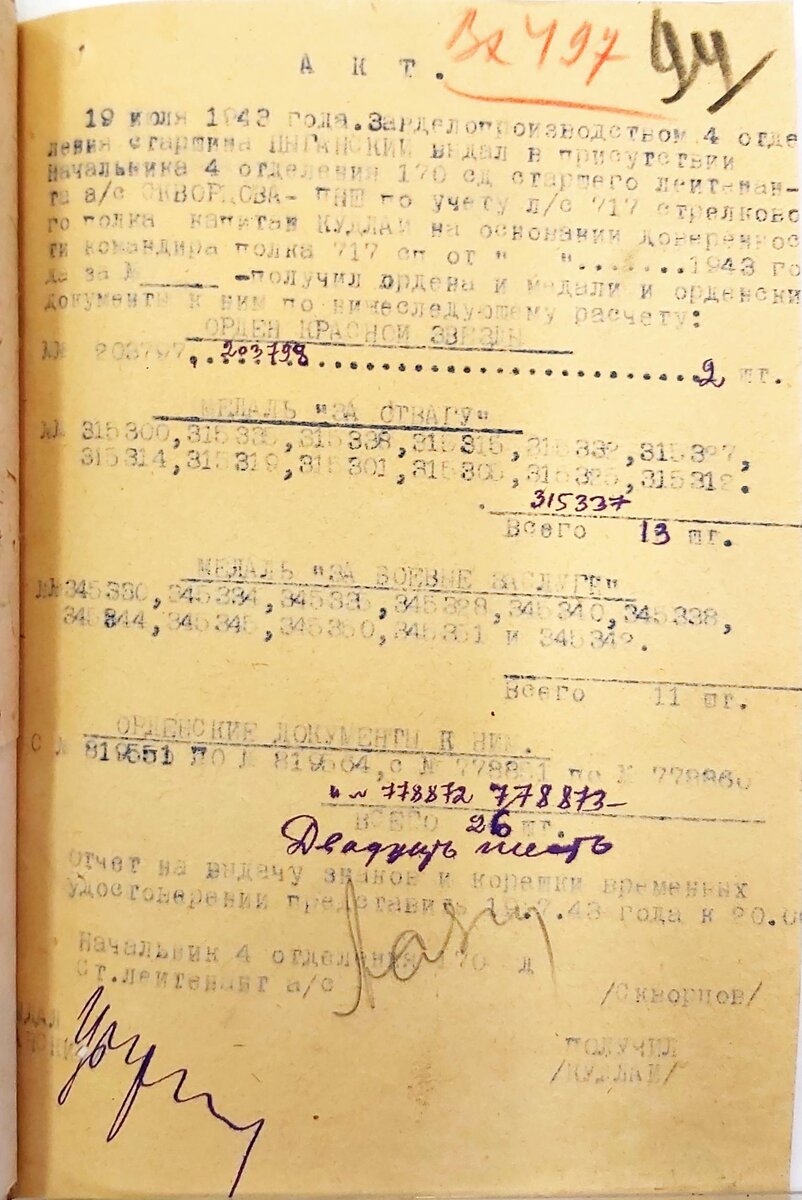 Вх 497 94
А К Т.
19 июля 1943 года.Завделопроизводством 4 отде
ления старшина выдал в присутствии
начальника 4 отделения 170 сд старшего лейтенан-
та а/с СКВОРЦОВА- ПНШ по учету л/с 717 стрелково
го полка капитан КУДЛАЙ на основании довереннос
ти командира полка 717 сп от " "........1943 го
да за №______ -получил ордена и медали и орденски
документы к ним по нижеследующему расчету:
ОРДЕН КРАСНОЙ ЗВЕЗДЫ
№№ 203797, 203798 2 шт.
МЕДАЛЬ "ЗА ОТВАГУ"
№№ 315300, 315338, 315315,
315314, 315319, 315301, 315312.
315337
Всего 13 шт.
МЕДАЛЬ "ЗА БОЕВЫЕ ЗАСЛУГИ"
№№ 345330, 345334, 345328, 345340, 345338,
345344, 345345, 345350, 345351 и 345349.
Всего 11 шт.
ОРДЕНСКИЕ ДОКУМЕНТЫ К НИМ.
С № 819551 ПО № 819564, с № 778851 по № 778860
и № 778872 778873-
ВСЕГО 26 шт.
Двадцать шесть
Отчет на выдачу знаков и корешки временных
удостоверений представить года к
Начальник 4 отделения 170 д
Ст.лейтенант а/с
/Скворцов/
ПОЛУЧИЛ
/КУДЛАЙ/